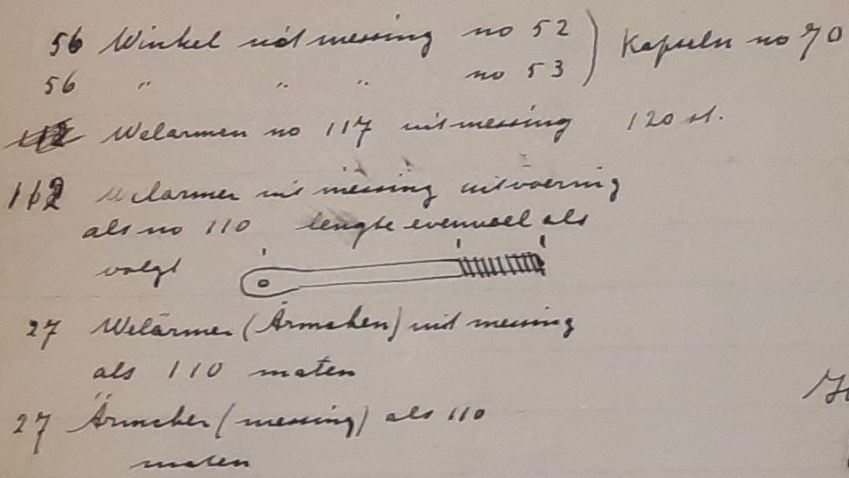 56 Winkel uit messing no 52 ) Kapseln no 70
56 " " " no 53 )
112 Welarmen no 117 uit messing 120 st.
112 Welarmen uit messing uitvoering
als no 110 lengte evenveel als
volgt
27 Welarmen (Ärmchen) uit messing
als 110 maten
27 Ärmchen (messing) als 110
maten